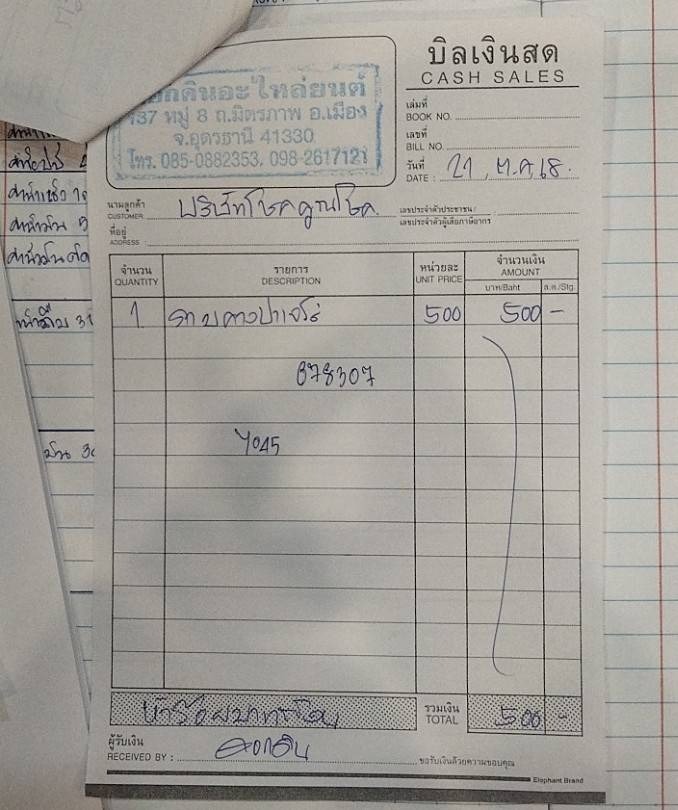 บิลเงินสด
CASH SALES
อกดินอะไหล่ยนต์
137 หมู่ 8 ถ.มิตรภาพ อ.เมือง
จ.อุดรธานี 41330
โทร. 085-0882353, 098-2617121
เล่มที่
BOOK NO.
เลขที่
BILL NO.
วันที่
DATE : 21 ต.ค. 68.
นามลูกค้า
CUSTOMER บริษัทโชคคูณโชค
เลขประจำตัวประชาชน :
เลขประจำตัวผู้เสียภาษีอากร
ที่อยู่
ADDRESS :
จำนวน รายการ หน่วยละ จำนวนเงิน
QUANTITY DESCRIPTION UNIT PRICE AMOUNT
บาท/Baht ส.ต./Stg.
1 500 500 -
678307
1045
ห้าร้อยบาทถ้วน รวมเงิน
TOTAL 500 -
ผู้รับเงิน
RECEIVED BY : ดอกดิน ขอรับเงินด้วยความขอบคุณ
Elephant Brand